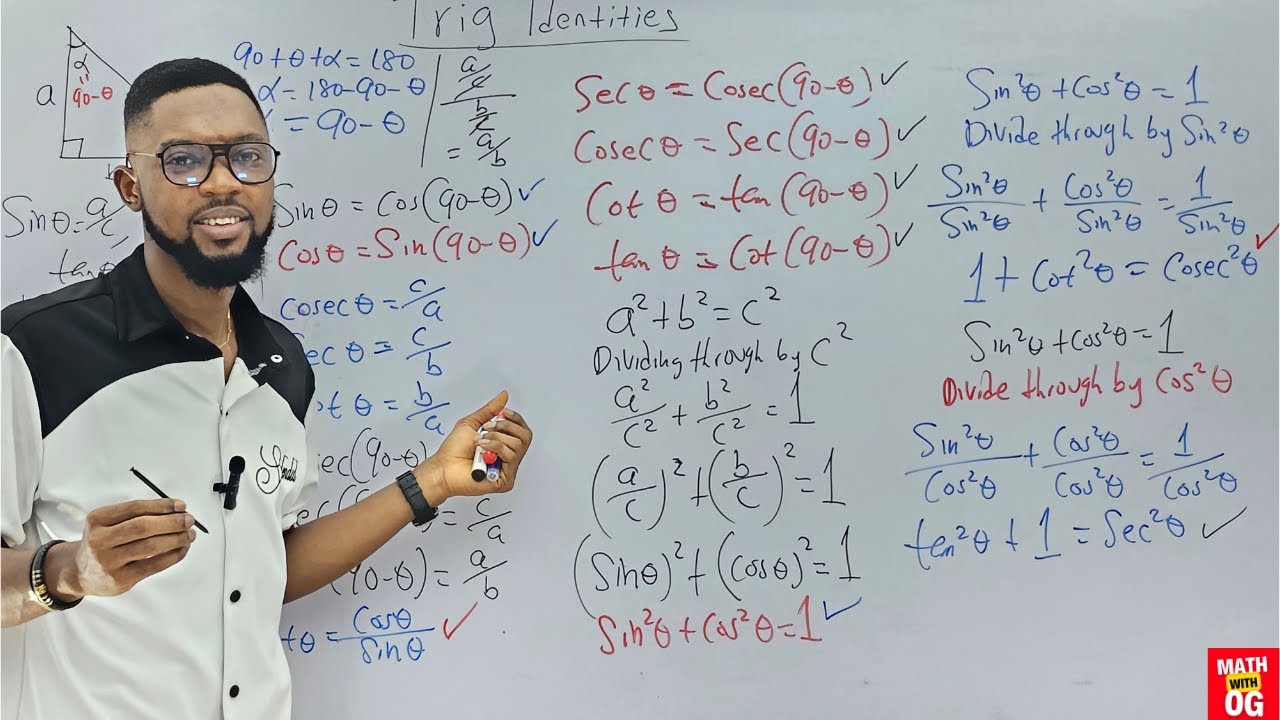 Trig Identities
a
α
"
90-θ
90+θ+α=180
α=180-90-θ
= 90-θ
a/c
b/c
= a/b
Sinθ=a/c
tanθ
Sinθ = Cos(90-θ)✓
Cosθ=Sin(90-θ)✓
Cosecθ=c/a
Sec θ = c/b
ot θ = b/a
sec(90-θ)
= c/a
(90-θ) = a/b
tθ = Cosθ/Sinθ ✓
Secθ = Cosec(90-θ)✓
Cosecθ = Sec(90-θ)✓
Cot θ = tan(90-θ)✓
tan θ = Cot(90-θ)✓
a²+b²=c²
Dividing through by c²
a²/c² + b²/c² = 1
(a/c)² + (b/c)² = 1
(Sinθ)² + (Cosθ)² = 1
Sin²θ + Cos²θ = 1 ✓
Sin²θ + Cos²θ = 1
Divide through by Sin²θ
Sin²θ/Sin²θ + Cos²θ/Sin²θ = 1/Sin²θ
1 + Cot²θ = Cosec²θ ✓
Sin²θ + Cos²θ = 1
Divide through by Cos²θ
Sin²θ/Cos²θ + Cos²θ/Cos²θ = 1/Cos²θ
tan²θ + 1 = Sec²θ ✓
MATH
WITH
OG